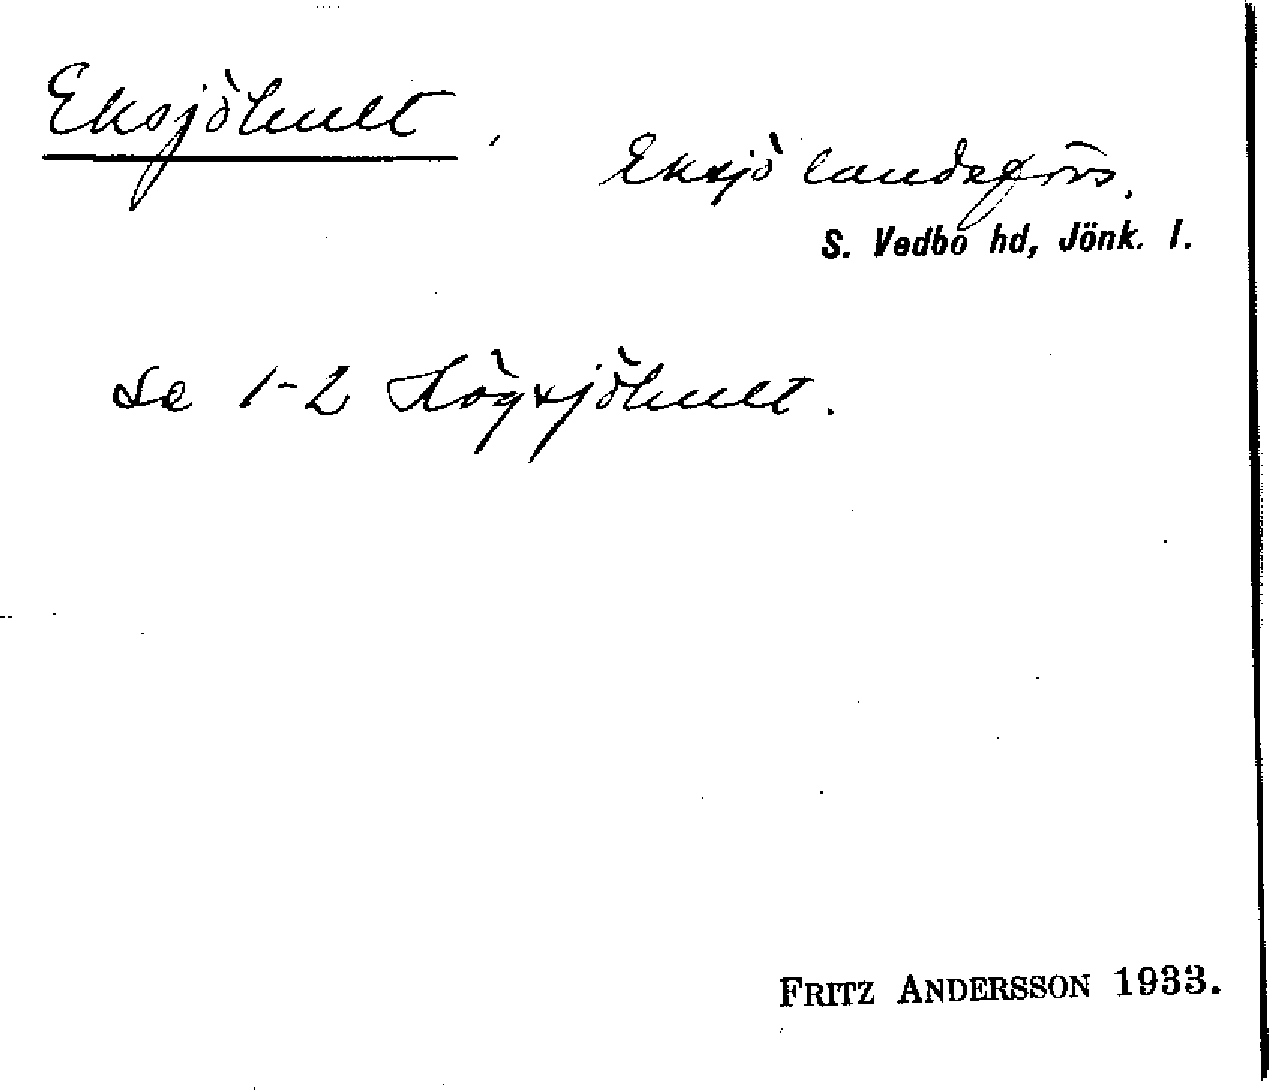 Eksjöhult,
Eksjö landsförs.
S. Vedbo hd, Jönk. l.
Se 1-2 Högsjöhult.
FRITZ ANDERSSON 1933.